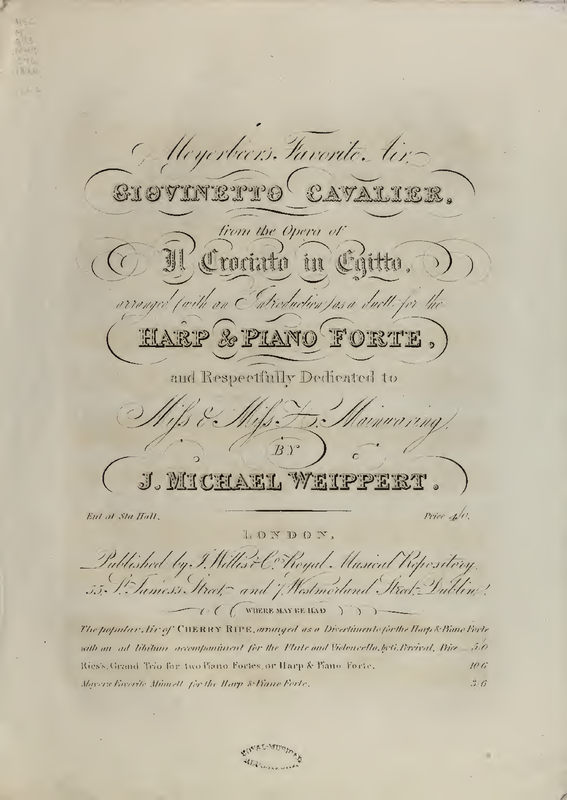 Meyerbeer's Favorite Air,
GIOVINETTO CAVALIER,
from the Opera of
Il Crociato in Egitto,
arranged (with an Introduction) as a duett for the
HARP & PIANO FORTE,
and Respectfully Dedicated to
Miss & Miss Fs. Mainwaring,
BY
J. MICHAEL WEIPPERT.
Ent at Sta. Hall. Price 4/0.
LONDON,
Published by J. Willis & Co. Royal Musical Repository,
55, St. James's Street, and 7, Westmorland Street, Dublin,
WHERE MAY BE HAD
The popular Air of CHERRY RIPE, arranged as a Divertimento for the Harp & Piano Forte
with an ad libitum accompaniment for the Flute and Violoncello, by G. Percival, Price 5/0
Ries's, Grand Trio for two Piano Fortes, or Harp & Piano Forte. 10/6
Favorite Minuett for the Harp & Piano Forte. 3/6
ROYAL MUSICAL